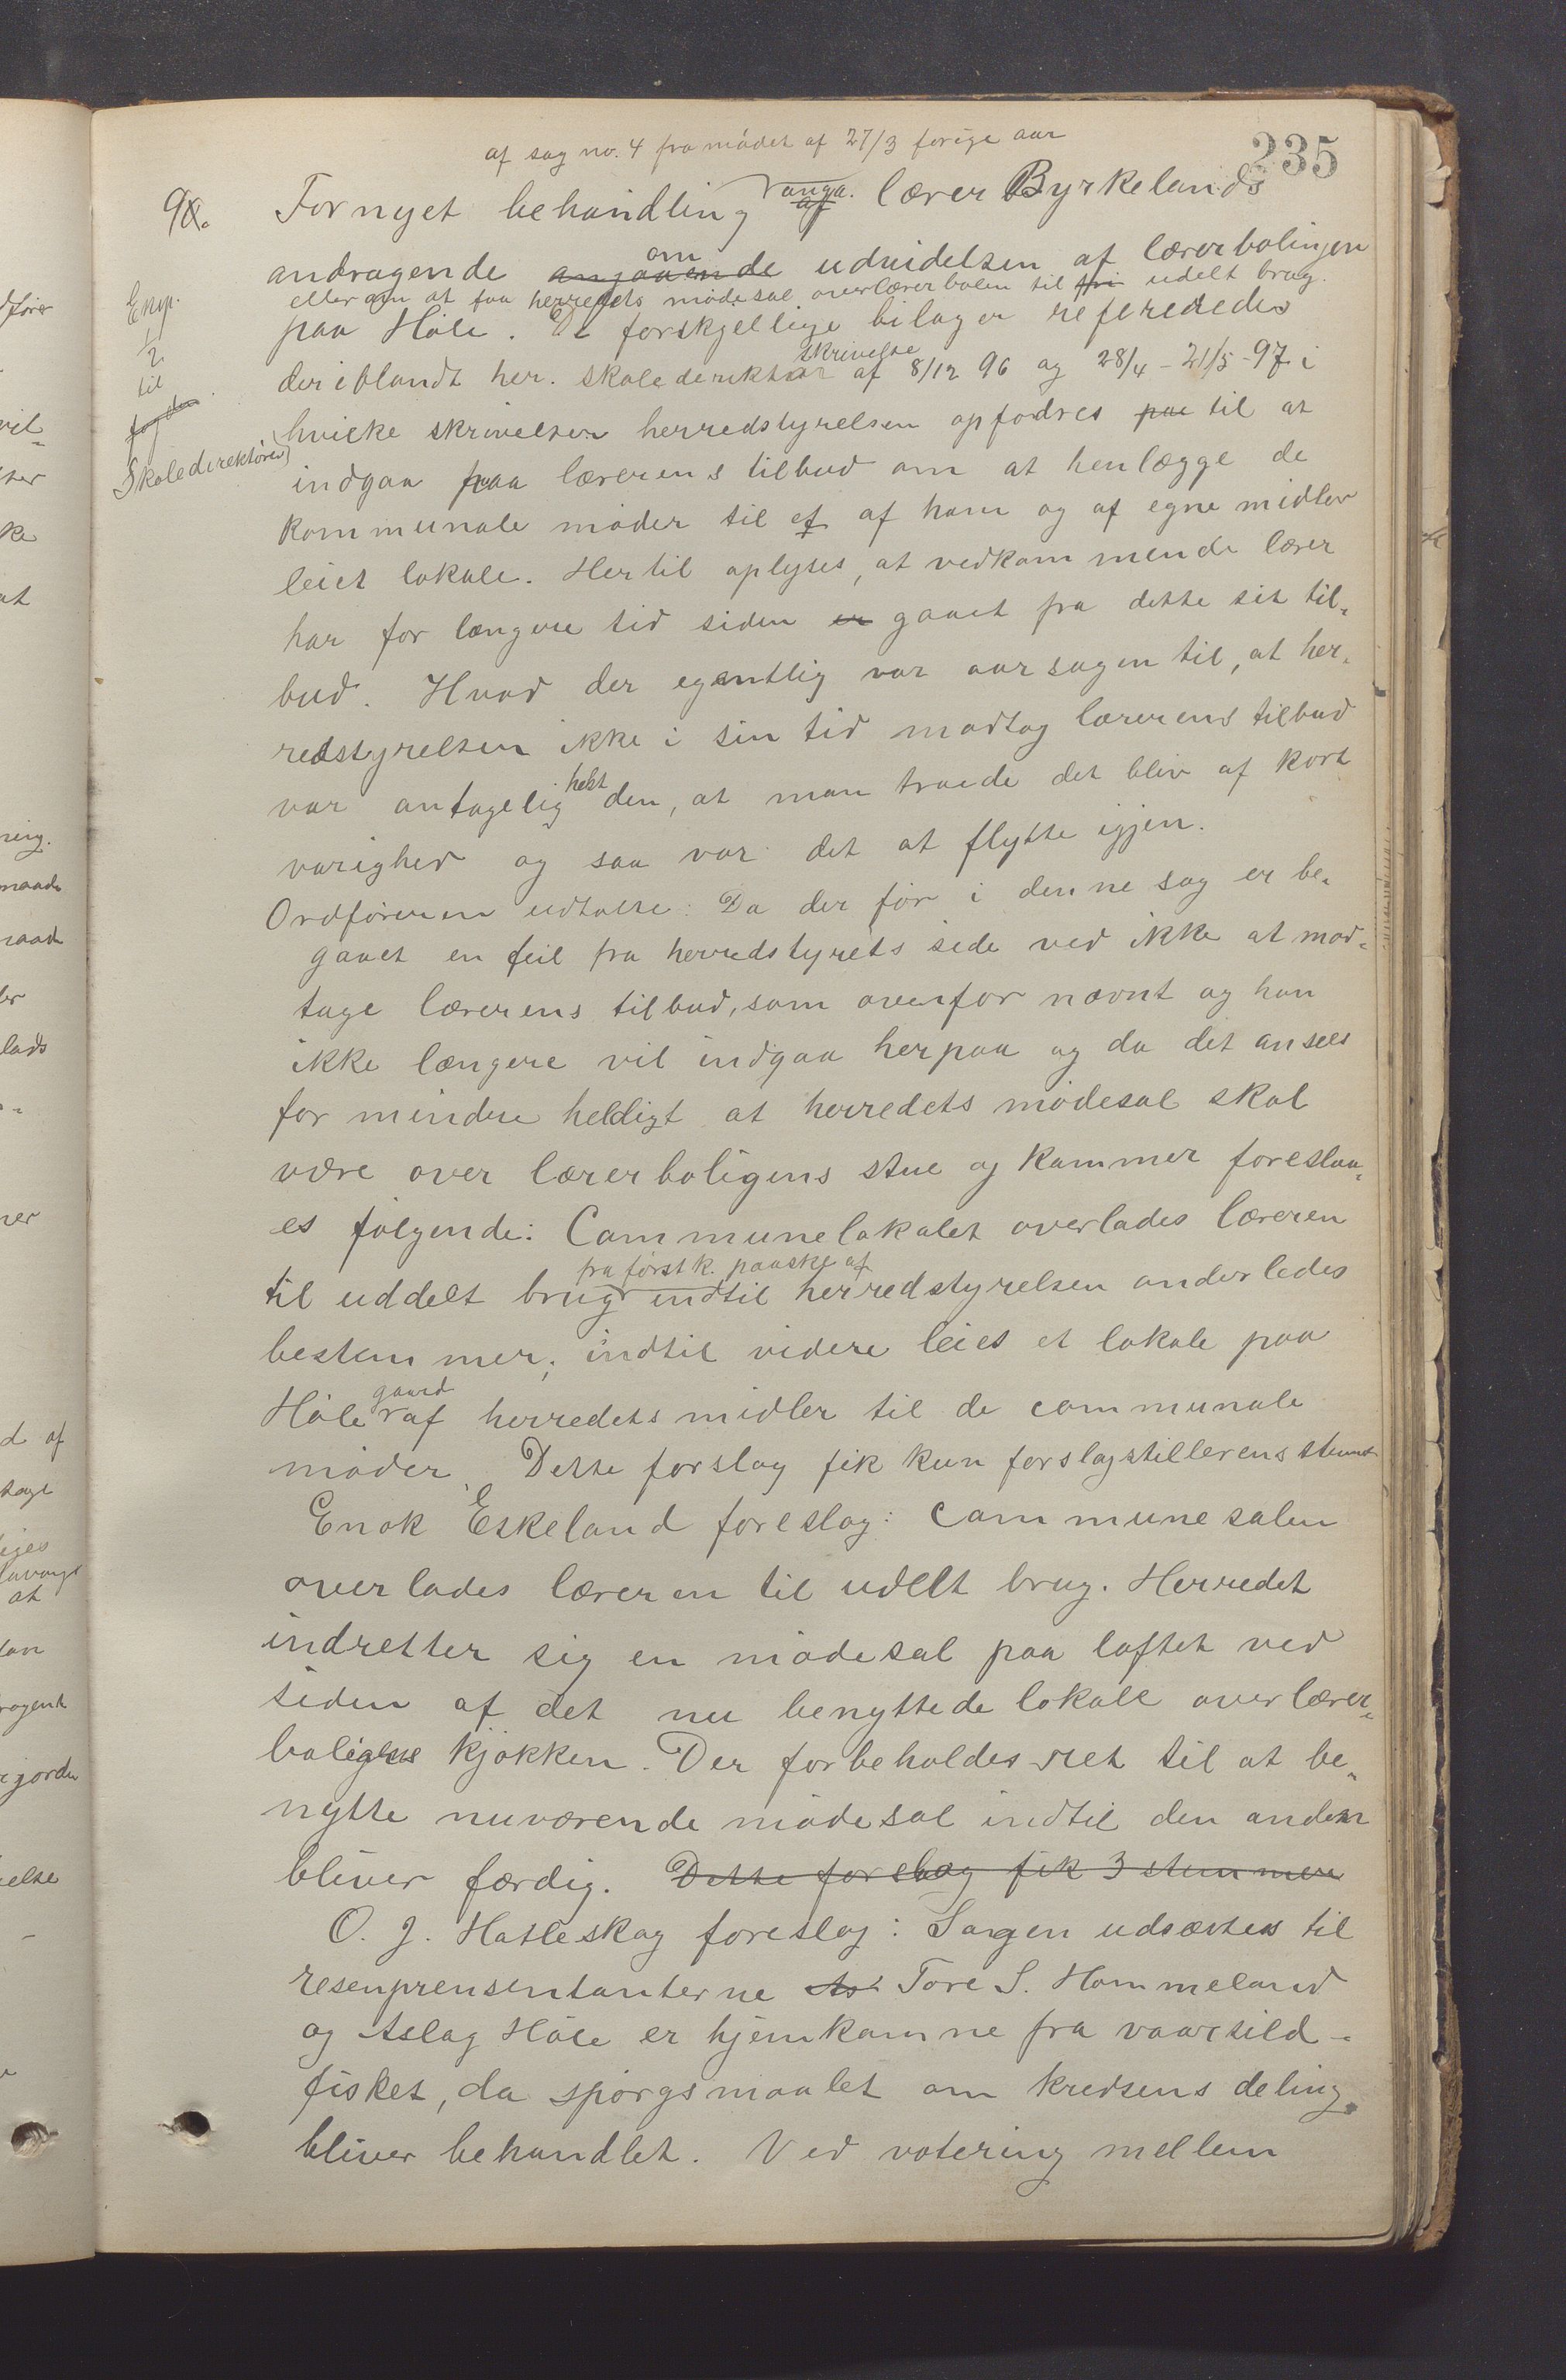 235
af sag no. 4 fra mødet af 27/3 forige aar
9. Fornyet behandling anga. lærer Byrkelands
andragende angaaende om udvidelsen af lærerboligen
eller om at faa herredets mødesal over lærerbolen til fri udelt brug.
paa Høle. De forskjellige bilager refereredes
deriblandt her. skoledirektør skrivelse af 8/12 96 og 28/4 - 21/5 - 97 i
hvilke skrivelser herredstyrelsen opfodres paa til at
indgaa paa lærerens tilbud om at henlægge de
kommunale møder til et af ham og af egne midler
leiet lokale. Hertil oplyses, at vedkommende lærer
har for længere tid siden er gaaet fra dette sit til-
bud. Hvad der egentlig var aarsagen til, at her-
redstyrelsen ikke i sin tid modtog lærerens tilbud
var antagelig helst den, at man troede det blev af kort
varighed og saa var det at flytte igjen.
Ordføreren udtalte: Da der før i denne sag er be-
gaaet en feil fra herredstyrets side ved ikke at mod-
tage lærerens tilbud, som ovenfor nævnt og han
ikke længere vil indgaa herpaa og da det ansees
for mindre heldigt at herredets mødesal skal
være over lærerboligens stue og kammer foreslaa-
es følgende: Communelokalet overlades læreren
til uddelt brug fra førstk. paaske af indtil herredstyrelsen anderledes
bestemmer; indtil videre leies et lokale paa
Høle gaard af herredets midler til de communale
møder. Dette forslag fik kun forslagstillerens stemme
Enok Eskeland foreslog: Communesalen
overlades læreren til udelt brug. Herredet
indretter sig en mødesal paa loftet ved
siden af det nu benyttede lokale over lærer-
boligens kjøkken. Der forbeholdes ret til at be-
nytte nuværende mødesal indtil den anden
bliver færdig. Dette forslag fik 3 stemmer
O. J. Hatleskog foreslog: Sagen udsættes til
resenprensentanterne As Tore S. Hommeland
og Aslag Høle er hjemkomne fra vaarsild-
fisket, da spørgsmaalet om kredsens deling
bliver behandlet. Ved votering mellem
Exp.
1/2
til
fogden
Skoledirektøren